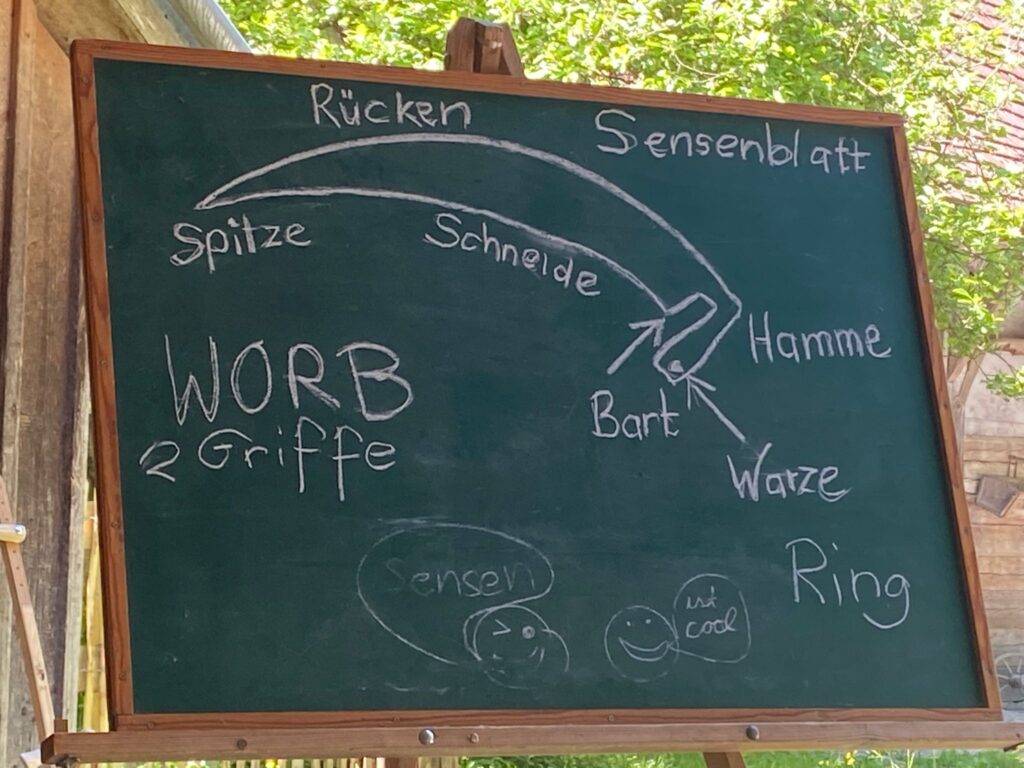 Rücken
Sensenblatt
Spitze
Schneide
Hamme
WORB
Bart
2 Griffe
Warze
Ring
Sensen
ist
cool